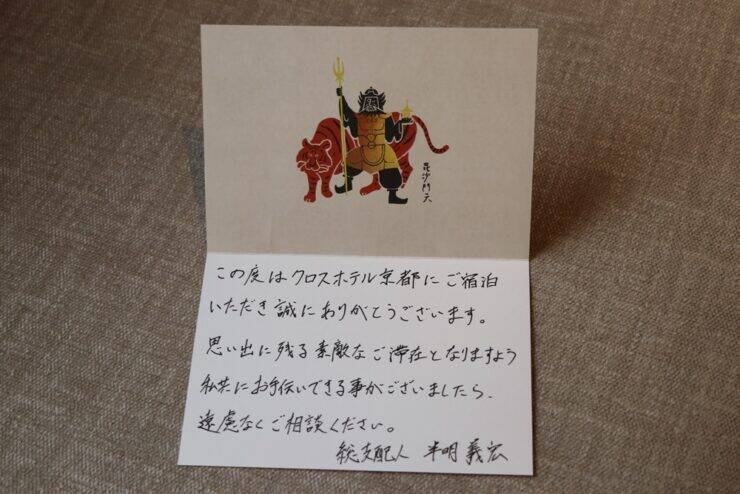 毘沙門天
この度はクロスホテル京都にご宿泊
いただき誠にありがとうございます。
思い出に残る素敵なご滞在となりますよう
私共にお手伝いできる事がございましたら、
遠慮なくご相談ください。
総支配人 半明 義宏